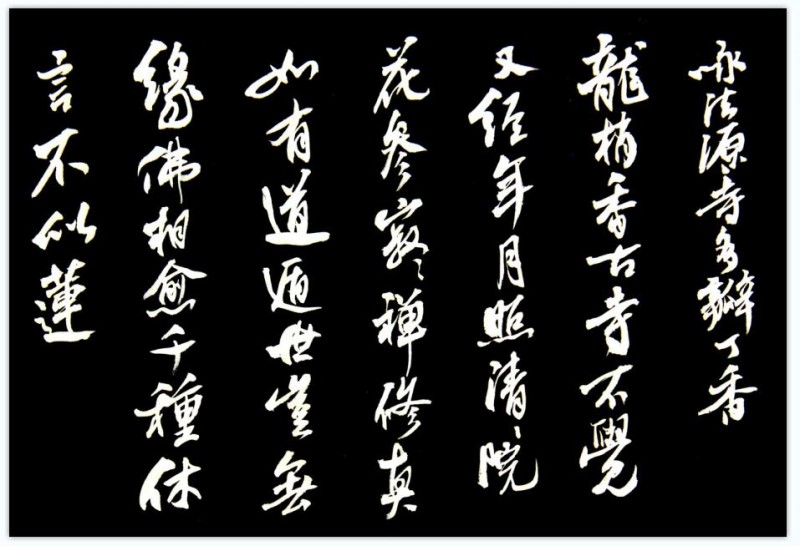 咏法源寺多瓣丁香
龍梢香古寺不覺
又經年月照清〻院
花參寂〻禪修真
如有道遁世豈無
緣佛相愈千種休
言不似蓮